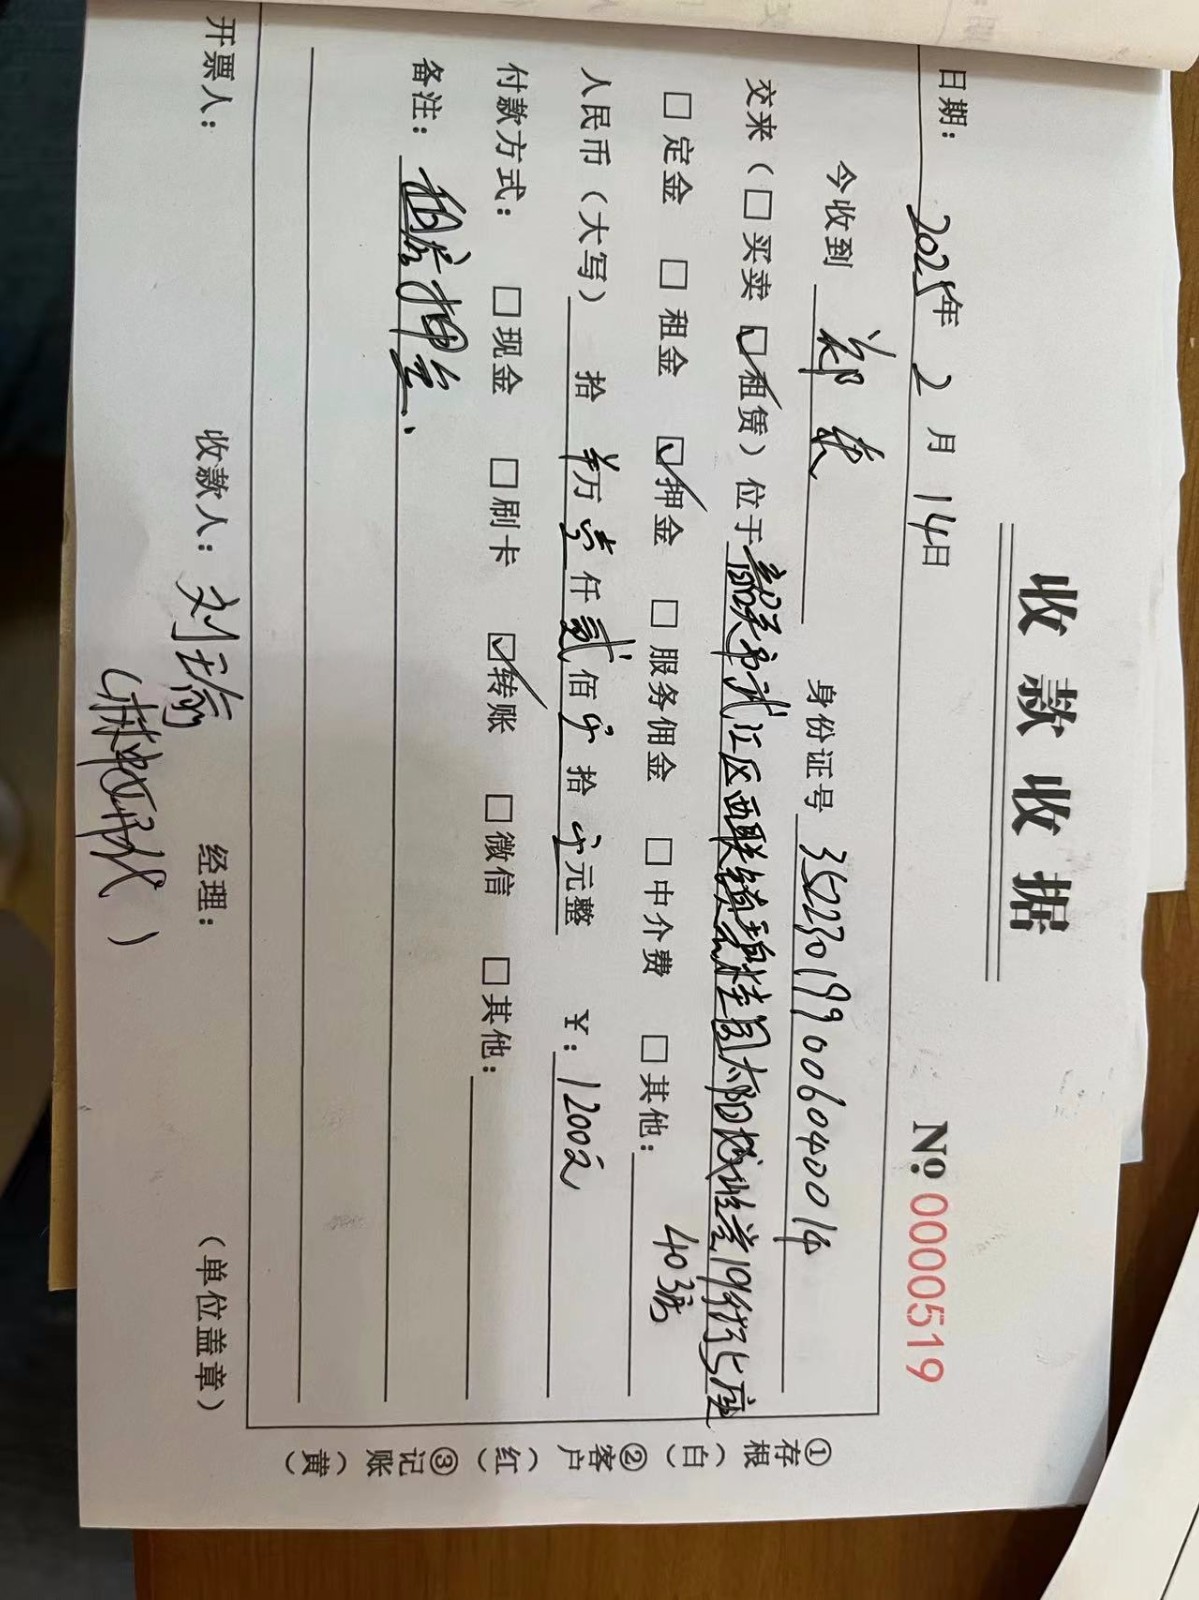 收款收据
No. 0000519
日期： 2025年 2 月 14日
今收到 郑 身份证号 352230199006040014
交来（□买卖 ☑租赁）位于韶关市武江区西联镇碧桂园太阳城 19 座
403房
□定金 □租金 ☑押金 □服务佣金 □中介费 □其他：
人民币（大写） 拾 万 壹 仟 贰 佰 零 拾 零 元整 ¥：1200元
付款方式： □现金 □刷卡 ☑转账 □微信 □其他：
备注： 租房押金.
开票人： 收款人： 刘瑜 经理： （单位盖章）
①存根（白） ②客户（红） ③记账（黄）